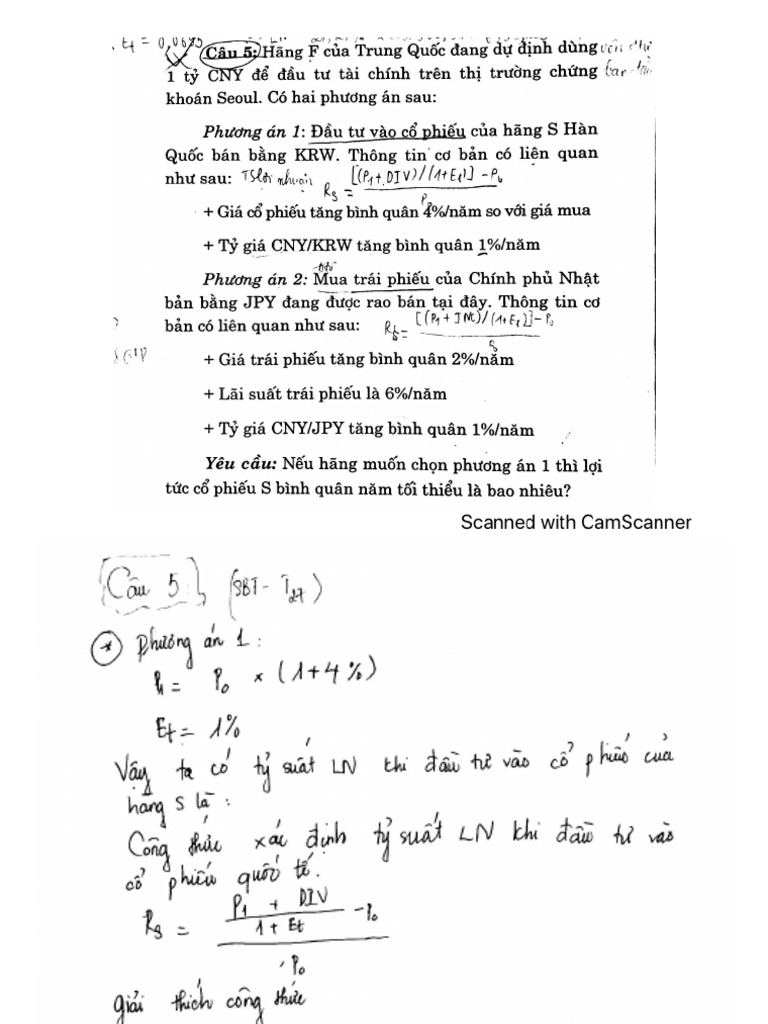 , Et = 0,0685
Câu 5: Hãng F của Trung Quốc đang dự định dùng vốn đtư
1 tỷ CNY để đầu tư tài chính trên thị trường chứng ban
khoán Seoul. Có hai phương án sau:
Phương án 1: Đầu tư vào cổ phiếu của hãng S Hàn
Quốc bán bằng KRW. Thông tin cơ bản có liên quan
như sau: TS lợi nhuận Rs = [(P1 + DIV)/(1+Et)] - P0
P0
+ Giá cổ phiếu tăng bình quân 4%/năm so với giá mua
+ Tỷ giá CNY/KRW tăng bình quân 1%/năm
Phương án 2: Mua trái phiếu của Chính phủ Nhật
bản bằng JPY đang được rao bán tại đây. Thông tin cơ
bản có liên quan như sau: Rb = [(P1 + INt)/(1+Et)] - P0
+ Giá trái phiếu tăng bình quân 2%/năm
+ Lãi suất trái phiếu là 6%/năm
+ Tỷ giá CNY/JPY tăng bình quân 1%/năm
Yêu cầu: Nếu hãng muốn chọn phương án 1 thì lợi
tức cổ phiếu S bình quân năm tối thiểu là bao nhiêu?
Scanned with CamScanner
Câu 5: (SBT - T27)
* Phương án 1:
P1 = P0 × (1+4%)
Et = 1%
Vậy ta có tỷ suất LN khi đầu tư vào cổ phiếu của
hãng S là:
Công thức xác định tỷ suất LN khi đầu tư vào
cổ phiếu quốc tế.
P1 + DIV
Rs = 1 + Et - P0
P0
Giải thích công thức